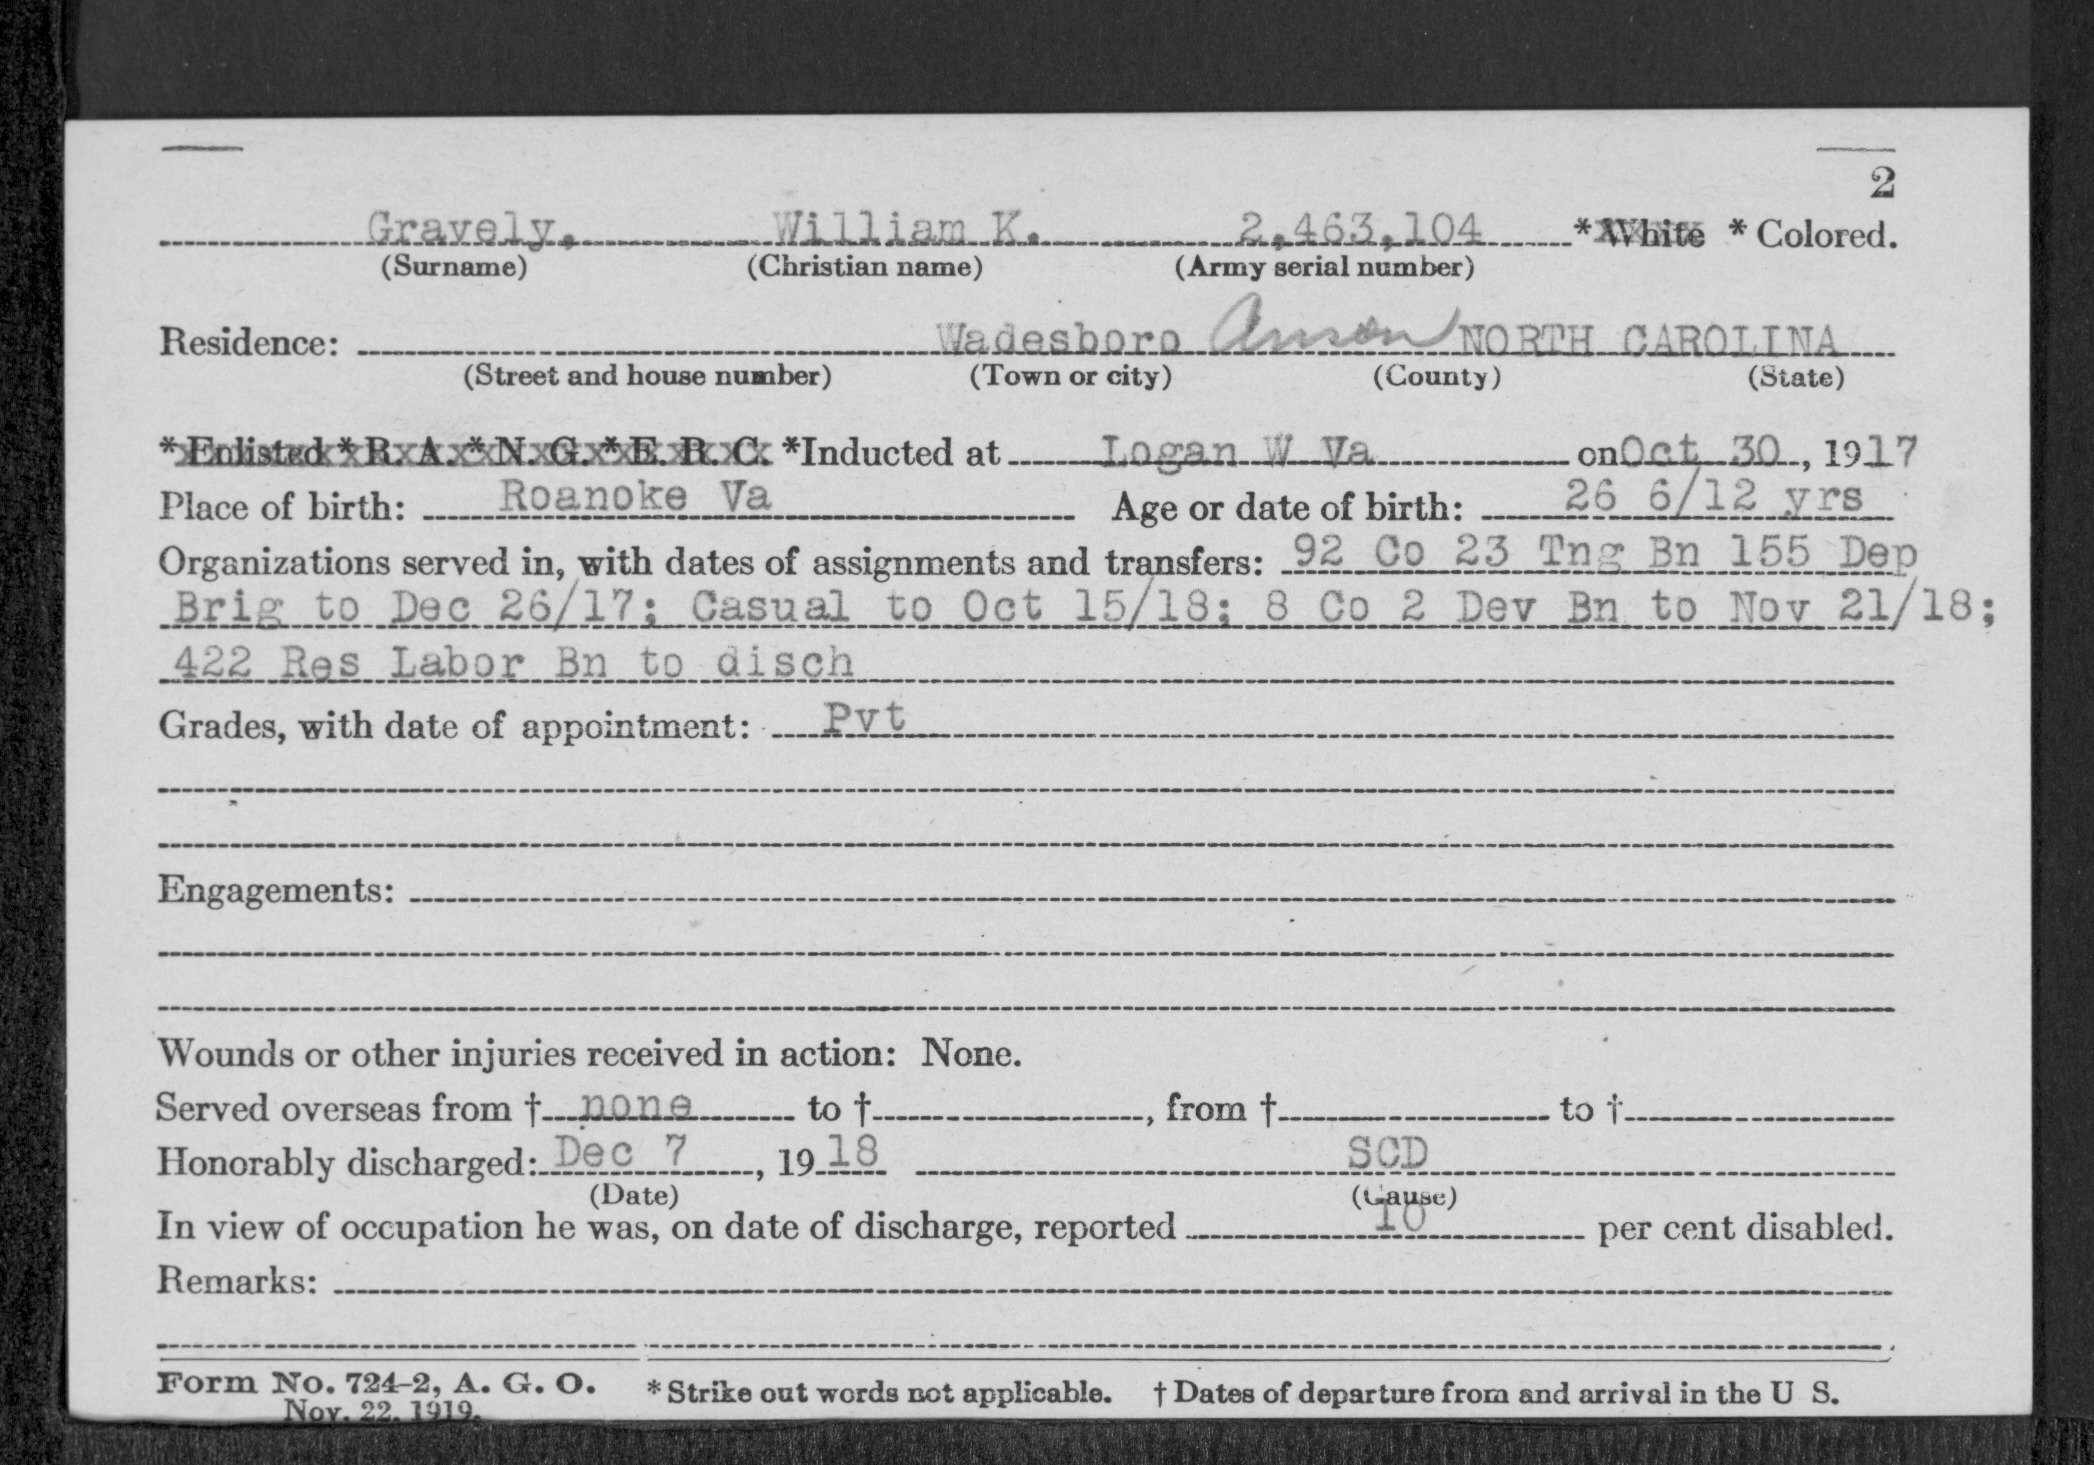 2
Gravely, William K. 2,463,104 * White * Colored.
(Surname) (Christian name) (Army serial number)
Residence: Wadesboro Anson NORTH CAROLINA
(Street and house number) (Town or city) (County) (State)
* Enlisted * R. A. * N. G. * E. R. C. *Inducted at Logan W Va on Oct 30, 1917
Place of birth: Roanoke Va Age or date of birth: 26 6/12 yrs
Organizations served in, with dates of assignments and transfers: 92 Co 23 Tng Bn 155 Dep
Brig to Dec 26/17; Casual to Oct 15/18; 8 Co 2 Dev Bn to Nov 21/18;
422 Res Labor Bn to disch
Grades, with date of appointment: Pvt
Engagements:
Wounds or other injuries received in action: None.
Served overseas from † none to †, from † to †
Honorably discharged: Dec 7, 1918 SCD
(Date) (Cause)
In view of occupation he was, on date of discharge, reported 10 per cent disabled.
Remarks:
Form No. 724-2, A. G. O. * Strike out words not applicable. † Dates of departure from and arrival in the U S.
Nov. 22, 1919.